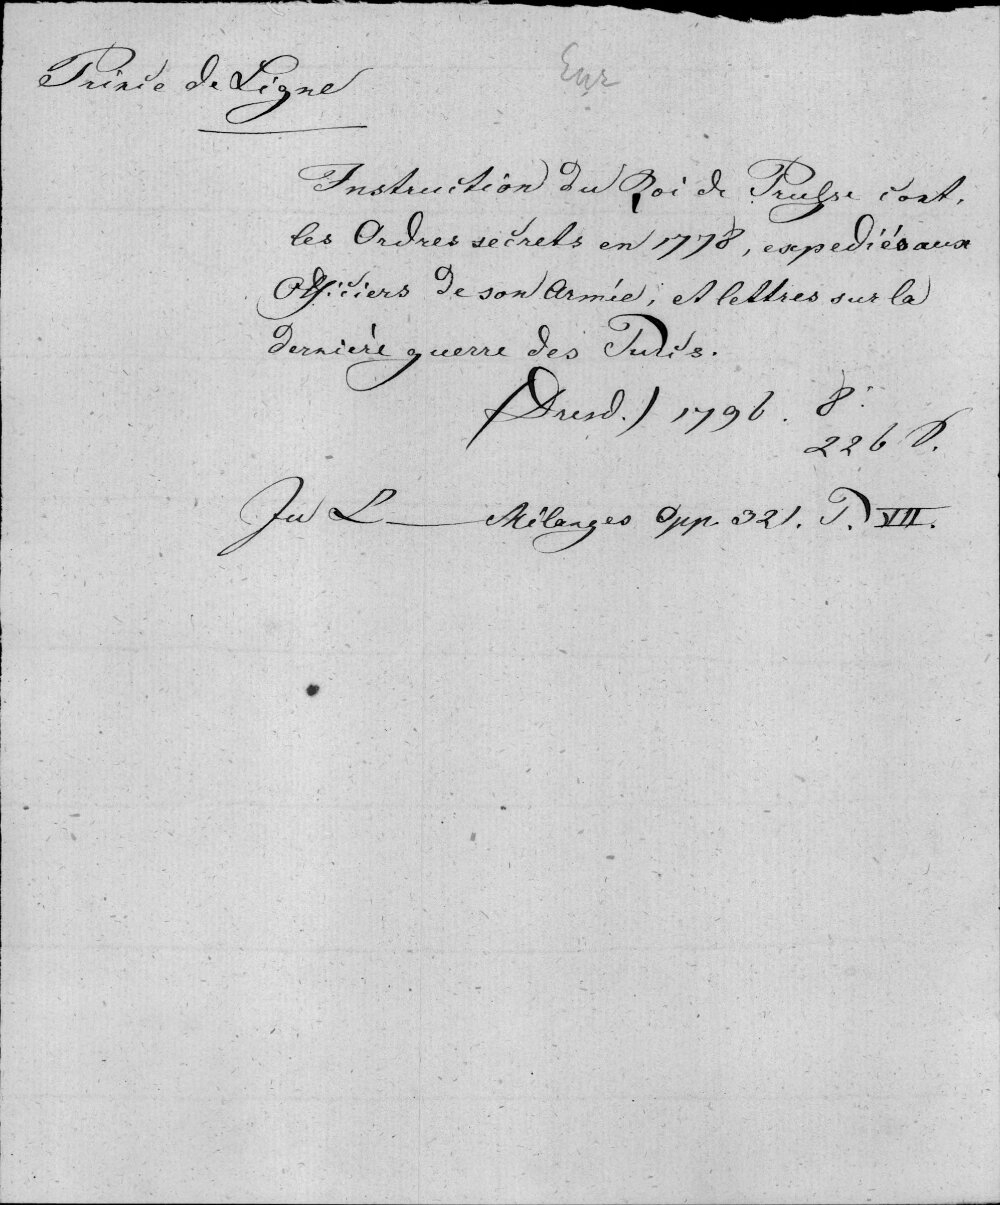 Prince de Ligne
Eur
Instruction du Roi de Prusse cont.
les Ordres secrets en 1778, expediés aux
Officiers de son Armée, et lettres sur la
derniere guerre des Turcs.
(Dresd.) 1796. 8.
226 S.
In L — Mélanges Opp. 321. T. VII.